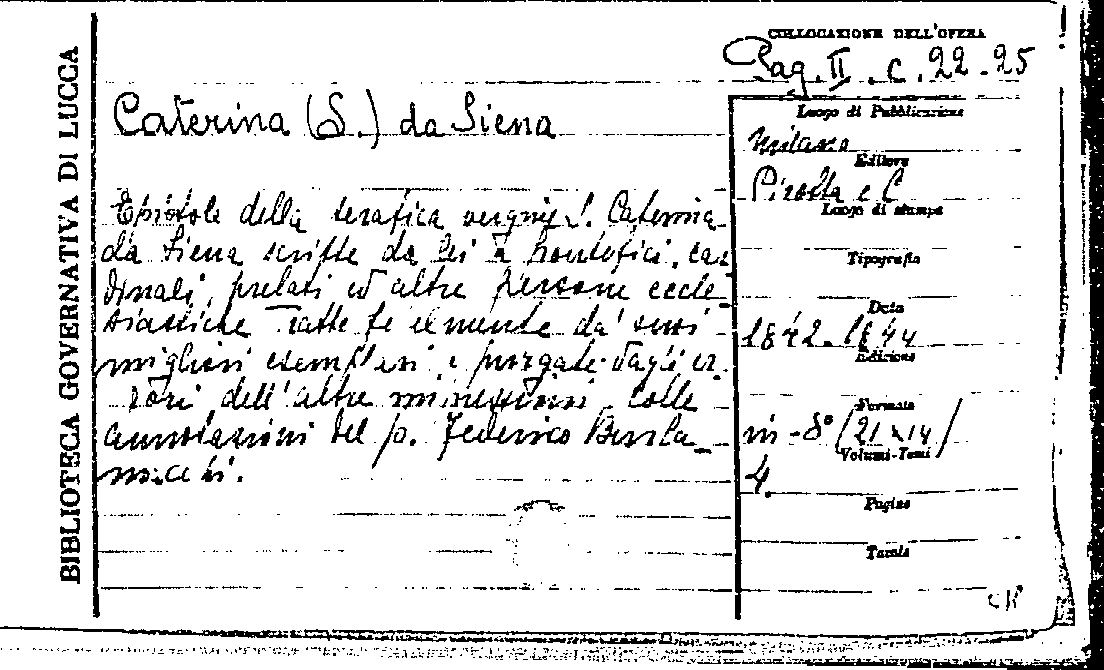 BIBLIOTECA GOVERNATIVA DI LUCCA
COLLOCAZIONE DELL'OPERA
Pag. II. c. 22-25
Caterina (S.) da Siena
Epistole della serafica vergine S. Caterina
da Siena scritte da lei a pontefici, car
dinali, prelati ed altre persone eccle
siastiche tratte fe elmente da' suoi
migliori esemplari e purgate dagli er
rori dell'altre impressioni colle
annotazioni del p. Federico Burla_
macchi.
Luogo di Pubblicazione
Milano
Editore
Pirotta e C
Luogo di stampa
Tipografia
Data
1842-1844
Edizione
Formato
in-8° (21x14)
Volumi-Tomi
4.
Pagine
Tavole